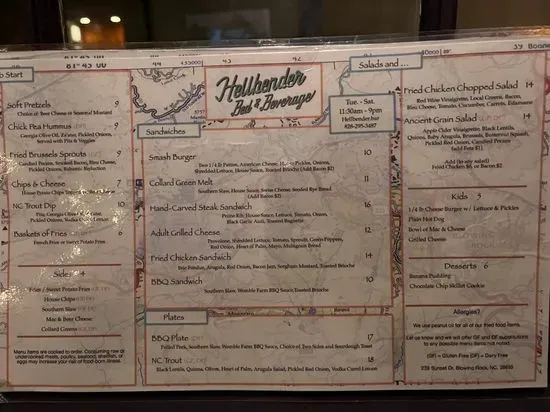 81°45'00"
o Start
Soft Pretzels 9
Choice of Beer Cheese or Seasonal Mustard
Chick Pea Hummus 9
Georgia Olive Oil, Za'atar, Pickled Onions,
Served with Pita & Veggies
Fried Brussels Sprouts 9
Candied Pecans, Smoked Bacon, Bleu Cheese,
Pickled Red Onions, Balsamic Reduction
Chips & Cheese 7
House Pimento Cheese
NC Trout Dip 10
Pita, Georgia Olive Oil,
Pickled Onions,
Baskets of Fries 6
French Fries or Sweet Potato Fries
Sides 4
Fries / Sweet Potato Fries
House Chips
Southern Slaw
Mac & Beer Cheese
Collard Greens
Menu items are cooked to order. Consuming raw or
undercooked meats, poultry, seafood, shellfish, or
eggs may increase your risk of food-borne illness.
Hellbender
Bed & Beverage
Tue. - Sat.
11:30am - 9pm
Hellbender.bar
828-295-3487
Sandwiches
Smash Burger 10
Two 1/4 lb Patties, American Cheese, House Pickles, Onions,
Shredded Lettuce, House Sauce, Toasted Brioche (Add Bacon $2)
Collard Green Melt 11
Southern Slaw, House Sauce, Swiss Cheese, Seeded Rye Bread
(Add Bacon $2)
Hand-Carved Steak Sandwich 16
Prime Rib, House Sauce, Lettuce, Tomato, Onion,
Black Garlic Aioli, Toasted Baguette
Adult Grilled Cheese 12
Provolone, Shredded Lettuce, Tomato, Sprouts, Green Peppers,
Red Onion, Heart of Palm, Mayo, Multigrain Bread
Fried Chicken Sandwich 14
Red Onion, Bacon Jam, Sorghum Mustard, Toasted Brioche
BBQ Sandwich 10
Southern Slaw, Womble Farm BBQ Sauce, Toasted Brioche
Plates
BBQ Plate 17
Pulled Pork, Southern Slaw, Womble Farm BBQ Sauce, Choice of Two Sides and Sourdough Toast
NC Trout 18
Black Lentils, Quinoa, Olives, Heart of Palm, Arugula Salad, Pickled Red Onion, Vodka Cured Lemon
Salads and ...
Fried Chicken Chopped Salad 14
Red Wine Vinaigrette, Local Greens, Bacon,
Bleu Cheese, Tomato, Cucumber, Carrots, Edamame
Ancient Grain Salad 14
Apple Cider Vinaigrette, Black Lentils,
Quinoa, Baby Arugula, Brussels, Butternut Squash,
Pickled Red Onion, Candied Pecans
(add Feta $1)
Add (to any salad)
Fried Chicken $6, or Bacon $2
Kids 7
1/4 lb Cheese Burger w/ Lettuce & Pickles
Plain Hot Dog
Bowl of Mac & Cheese
Grilled Cheese
Desserts 6
Banana Pudding
Chocolate Chip Skillet Cookie
Allergies?
We use peanut oil for all of our fried food items.
Let us know and we will offer GF and DF substitutions
to any possible menu items listed.
(GF) = Gluten Free (DF) = Dairy Free
239 Sunset Dr. Blowing Rock, NC. 28605